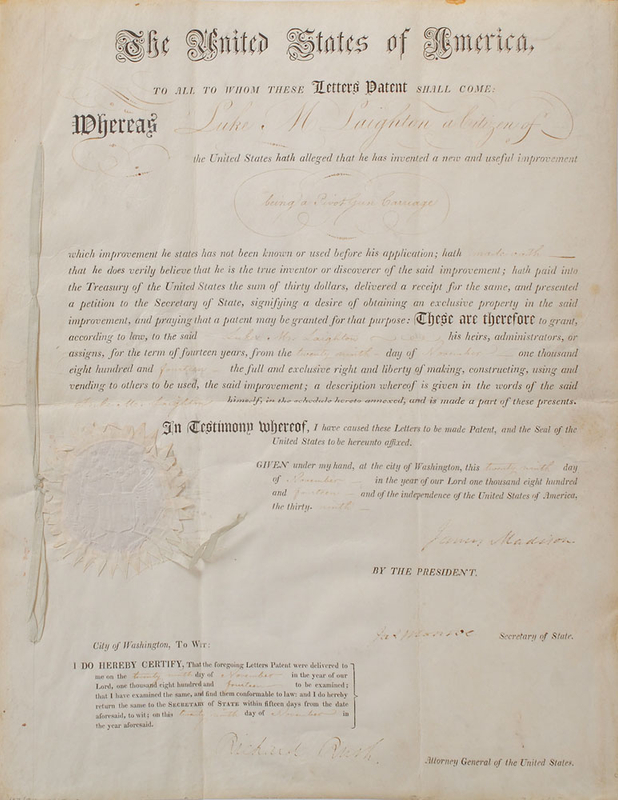 The United States of America,
TO ALL TO WHOM THESE Letters Patent SHALL COME:
Whereas Luke M Laighton a Citizen of
the United States hath alleged that he has invented a new and useful improvement
being a Pivot Gun Carriage
which improvement he states has not been known or used before his application; hath made oath
that he does verily believe that he is the true inventor or discoverer of the said improvement; hath paid into
the Treasury of the United States the sum of thirty dollars, delivered a receipt for the same, and presented
a petition to the Secretary of State, signifying a desire of obtaining an exclusive property in the said
improvement, and praying that a patent may be granted for that purpose: These are therefore to grant,
according to law, to the said Luke M. Laighton his heirs, administrators, or
assigns, for the term of fourteen years, from the twenty ninth day of November one thousand
eight hundred and fourteen the full and exclusive right and liberty of making, constructing, using and
vending to others to be used, the said improvement; a description whereof is given in the words of the said
Laighton himself, in the schedule hereto annexed, and is made a part of these presents.
In Testimony whereof, I have caused these Letters to be made Patent, and the Seal of the
United States to be hereunto affixed.
GIVEN under my hand, at the city of Washington, this twenty ninth day
of November in the year of our Lord one thousand eight hundred
and fourteen and of the independence of the United States of America,
the thirty- ninth
James Madison
BY THE PRESIDENT.
Jas Monroe Secretary of State.
City of Washington, To Wit:
I DO HEREBY CERTIFY, That the foregoing Letters Patent were delivered to
me on the twenty ninth day of November in the year of our
Lord, one thousand eight hundred and fourteen to be examined;
that I have examined the same, and find them conformable to law: and I do hereby
return the same to the SECRETARY OF STATE within fifteen days from the date
aforesaid, to wit; on this twenty ninth day of November in
the year aforesaid.
Richard Rush.
Attorney General of the United States.